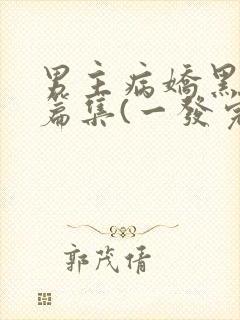 男主病嬌黑
篇集(一發完
郭茂倩